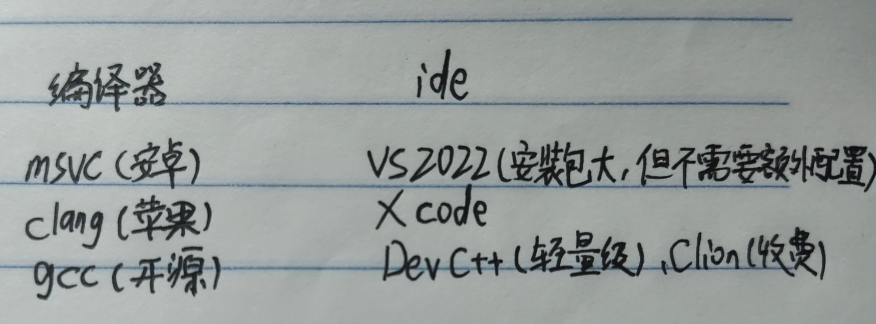 编译器 ide
msvc(安卓) VS2022(安装包大,但不需要额外配置)
clang(苹果) Xcode
gcc(开源) Dev C++(轻量级),Clion(收费)